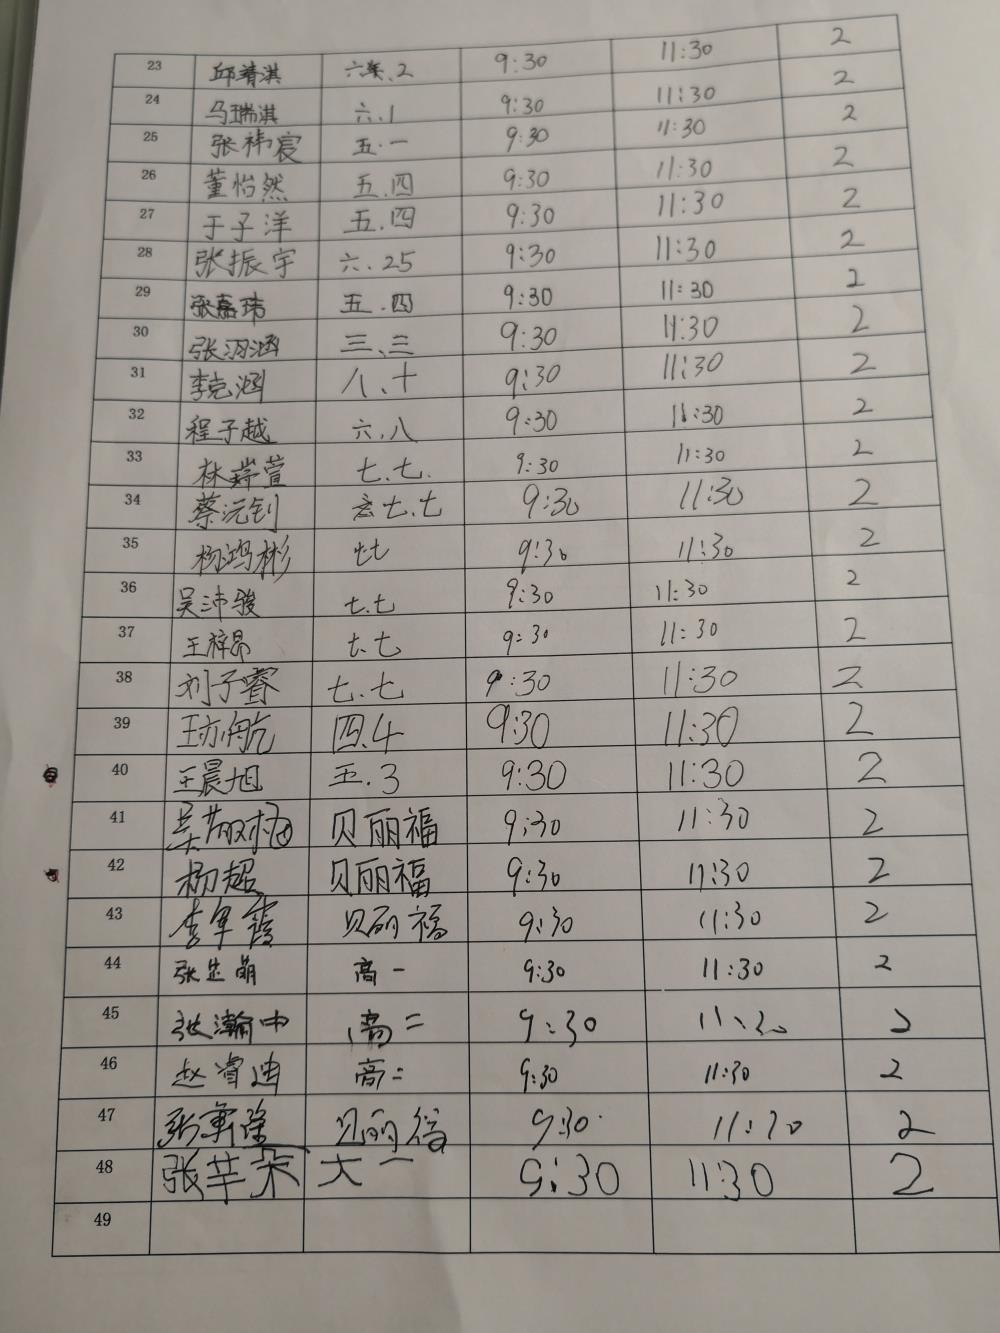 23 邱靖淇 六年.2 9:30 11:30 2
24 马瑞淇 六.1 9:30 11:30 2
25 张祎宸 五.一 9:30 11:30 2
26 董怡然 五.四 9:30 11:30 2
27 于子洋 五.四 9:30 11:30 2
28 张振宇 六.25 9:30 11:30 2
29 张嘉玮 五.四 9:30 11:30 2
30 张汐涵 三、三 9:30 11:30 2
31 李克涵 八、十 9:30 11:30 2
32 程子越 六.八 9:30 11:30 2
33 林萱 七.七. 9:30 11:30 2
34 蔡沅钊 七.七 9:30 11:30 2
35 杨鸿彬 七七 9:30 11:30 2
36 吴沛骏 七.七 9:30 11:30 2
37 王梓昂 七.七 9:30 11:30 2
38 刘子睿 七.七 9:30 11:30 2
39 王亦航 四.4 9:30 11:30 2
40 王晨旭 五.3 9:30 11:30 2
41 吴 贝丽福 9:30 11:30 2
42 杨超 贝丽福 9:30 11:30 2
43 李军霞 贝丽福 9:30 11:30 2
44 张芷萌 高一 9:30 11:30 2
45 张瀚中 高二 9:30 11:30 2
46 赵睿迪 高二 9:30 11:30 2
47 张 贝丽福 9:30 11:30 2
48 张芊朵 大一 9:30 11:30 2
49